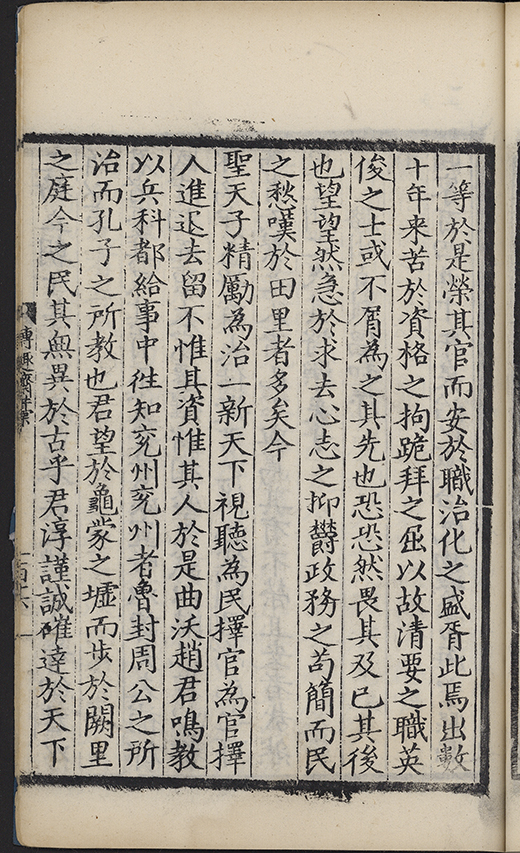 一等於是榮其官而安於職治化之盛胥此焉出數
十年来苦於資格之拘跪拜之屈以故清要之職英
俊之士或不屑為之其先也恐恐然畏其及已其後
也望望然急於求去心志之抑欝政務之苟簡而民
之愁嘆於田里者多矣今
聖天子精勵為治一新天下視聽為民擇官為官擇
人進退去留不惟其資惟其人於是曲沃趙君鳴教
以兵科都給事中徃知兖州兖州者魯封周公之所
治而孔子之所教也君望於龜蒙之墟而步於闕里
之庭今之民其無異於古乎君淳謹誠確達於天下